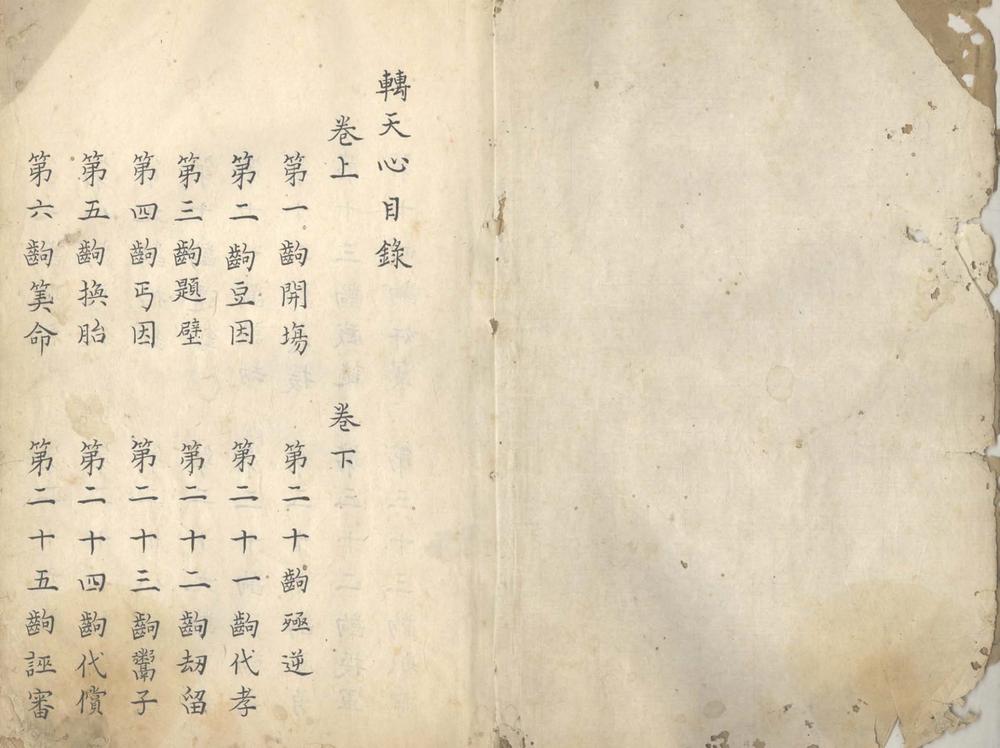 轉天心目錄
卷上　卷下
第一齣開塲　第二十齣殛逆
第二齣豆因　第二十一齣代孝
第三齣題壁　第二十二齣刧留
第四齣丐因　第二十三齣鬻子
第五齣換胎　第二十四齣代償
第六齣筭命　第二十五齣誣審